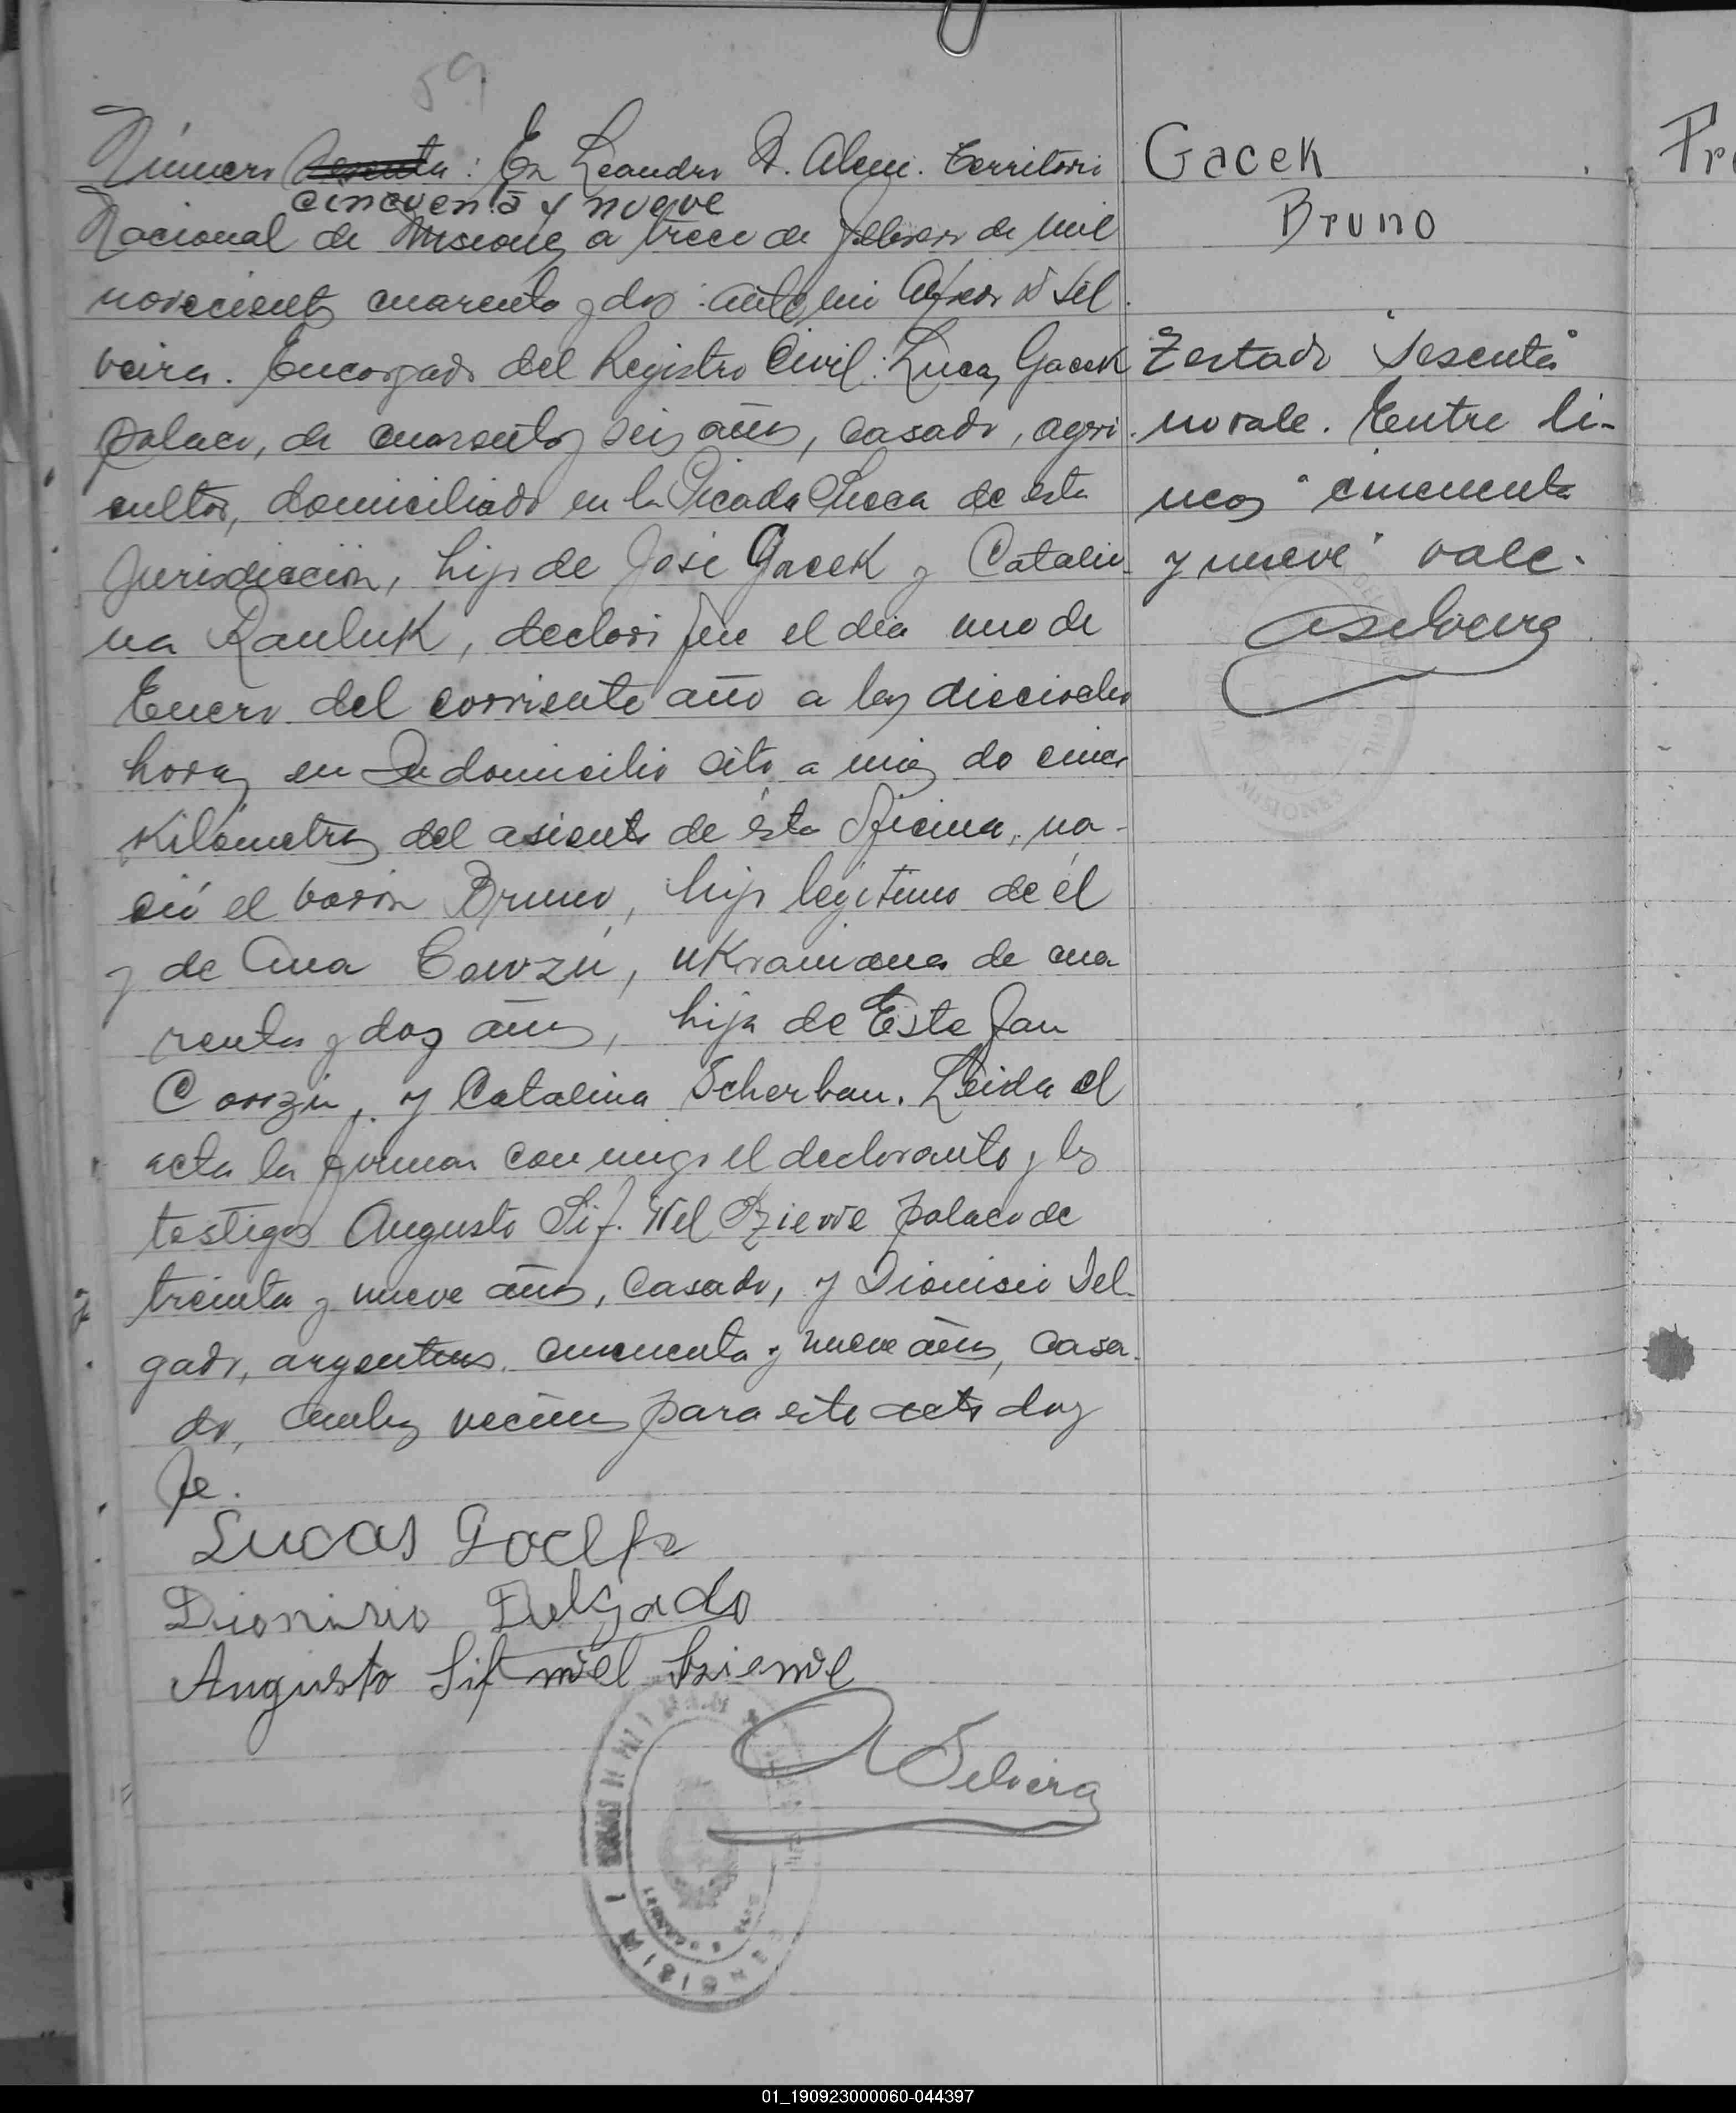 59
Número sesenta: En Leandro N. Alem. Territorio
cincuenta y nueve
Nacional de Misiones a trece de Febrero de mil
novecientos cuarenta y dos: ante mi D Sil
veira. Encargado del Registro Civil: Lucas Gacek
polaco, de cuarenta y seis años, casado, agri
cultor, domiciliado en la Picada de esta
Jurisdicción, hijo de José Gacek y Catali-
na Rauluk, declaró que el día uno de
Enero del corriente año a las dieciocho
horas en su domicilio sito a más do cinco
Kilómetros del asiento de ésta Oficina, na-
ció el varón Bruno, hijo legítimo de él
y de Ana Cowzú, ukraniana de cua
renta y dos años, hija de Estefan
Cowzú, y Catalina Scherban. Leida el
acta la firman conmigo el declarante y los
testigos Augusto Sif. Wel polaco de
treinta y nueve años, casado, y Dionisio Del-
gado, argentino, cincuenta y nueve años, casa-
do, ambos vecinos para este acto doy
fe.
Lucas Gacek
Dionisio Delgado
Augusto Sif
A Silveira
Gacek
Bruno
Testado "sesenta"
no vale. Entre li-
neas "cincuenta
y nueve" vale.
ASilveira
Pr
01_190923000060-044397